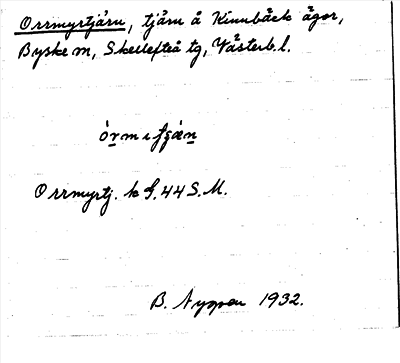 Orrmyrtjärn, tjärn å Kinnbäck ägor,
Byske sn, Skellefteå tg, Västerb. l.
Orrmyrtj. k G. 44 S. M.
B. Nygren 1932.